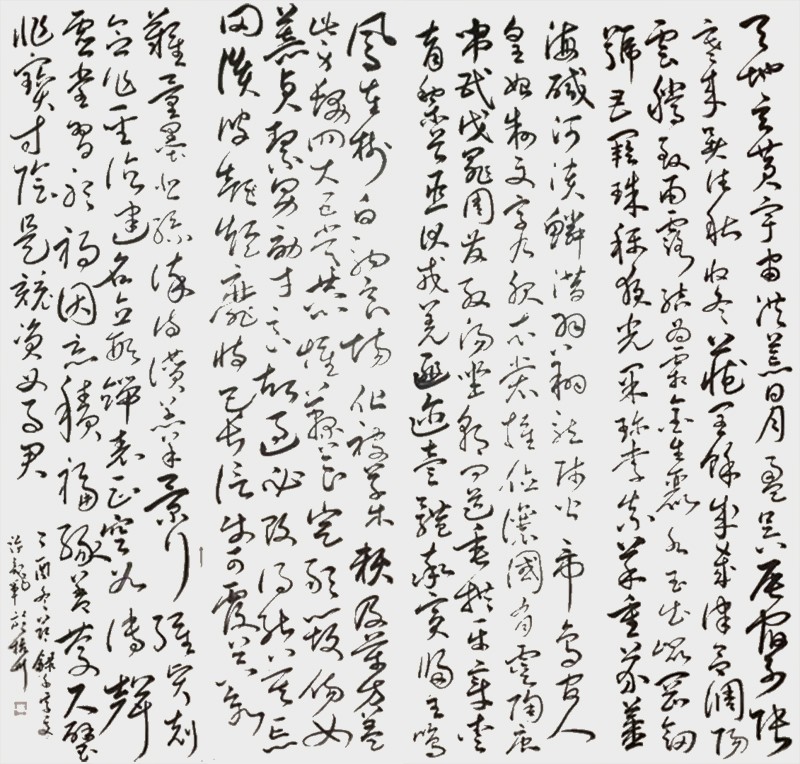 天地玄黃宇宙洪荒日月盈昃辰宿列張
寒來暑往秋收冬藏閏餘成歲律呂調陽
雲騰致雨露結為霜金生麗水玉出崑岡劍
號巨闕珠稱夜光果珍李柰菜重芥薑
海鹹河淡鱗潛羽翔龍師火帝鳥官人
皇始制文字乃服衣裳推位讓國有虞陶唐
弔民伐罪周發殷湯坐朝問道垂拱平章愛
育黎首臣伏戎羌遐邇壹體率賓歸王鳴
鳳在樹白駒食場化被草木賴及萬方蓋
此身髮四大五常恭惟鞠養豈敢毀傷女
慕貞絜男效才良知過必改得能莫忘
罔談彼短靡恃己長信使可覆器欲
難量墨悲絲染詩讚羔羊景行維賢剋
念作聖德建名立形端表正空谷傳聲
虛堂習聽禍因惡積福緣善慶尺璧
非寶寸陰是競資父事君
丁酉冬節錄千字文